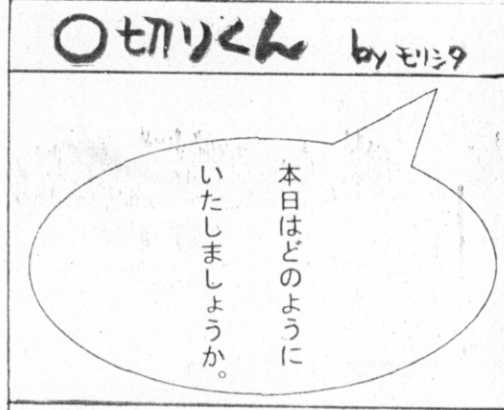 〇切りくん by モリシタ
本日はどのように
いたしましょうか。